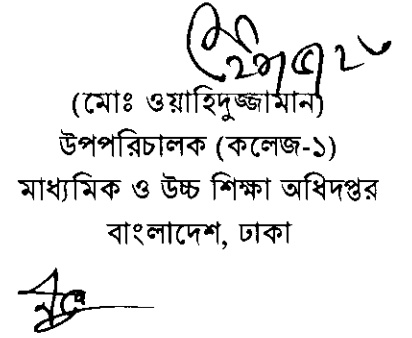 (মোঃ ওয়াহিদুজ্জামান)
উপপরিচালক (কলেজ-১)
মাধ্যমিক ও উচ্চ শিক্ষা অধিদপ্তর
বাংলাদেশ, ঢাকা